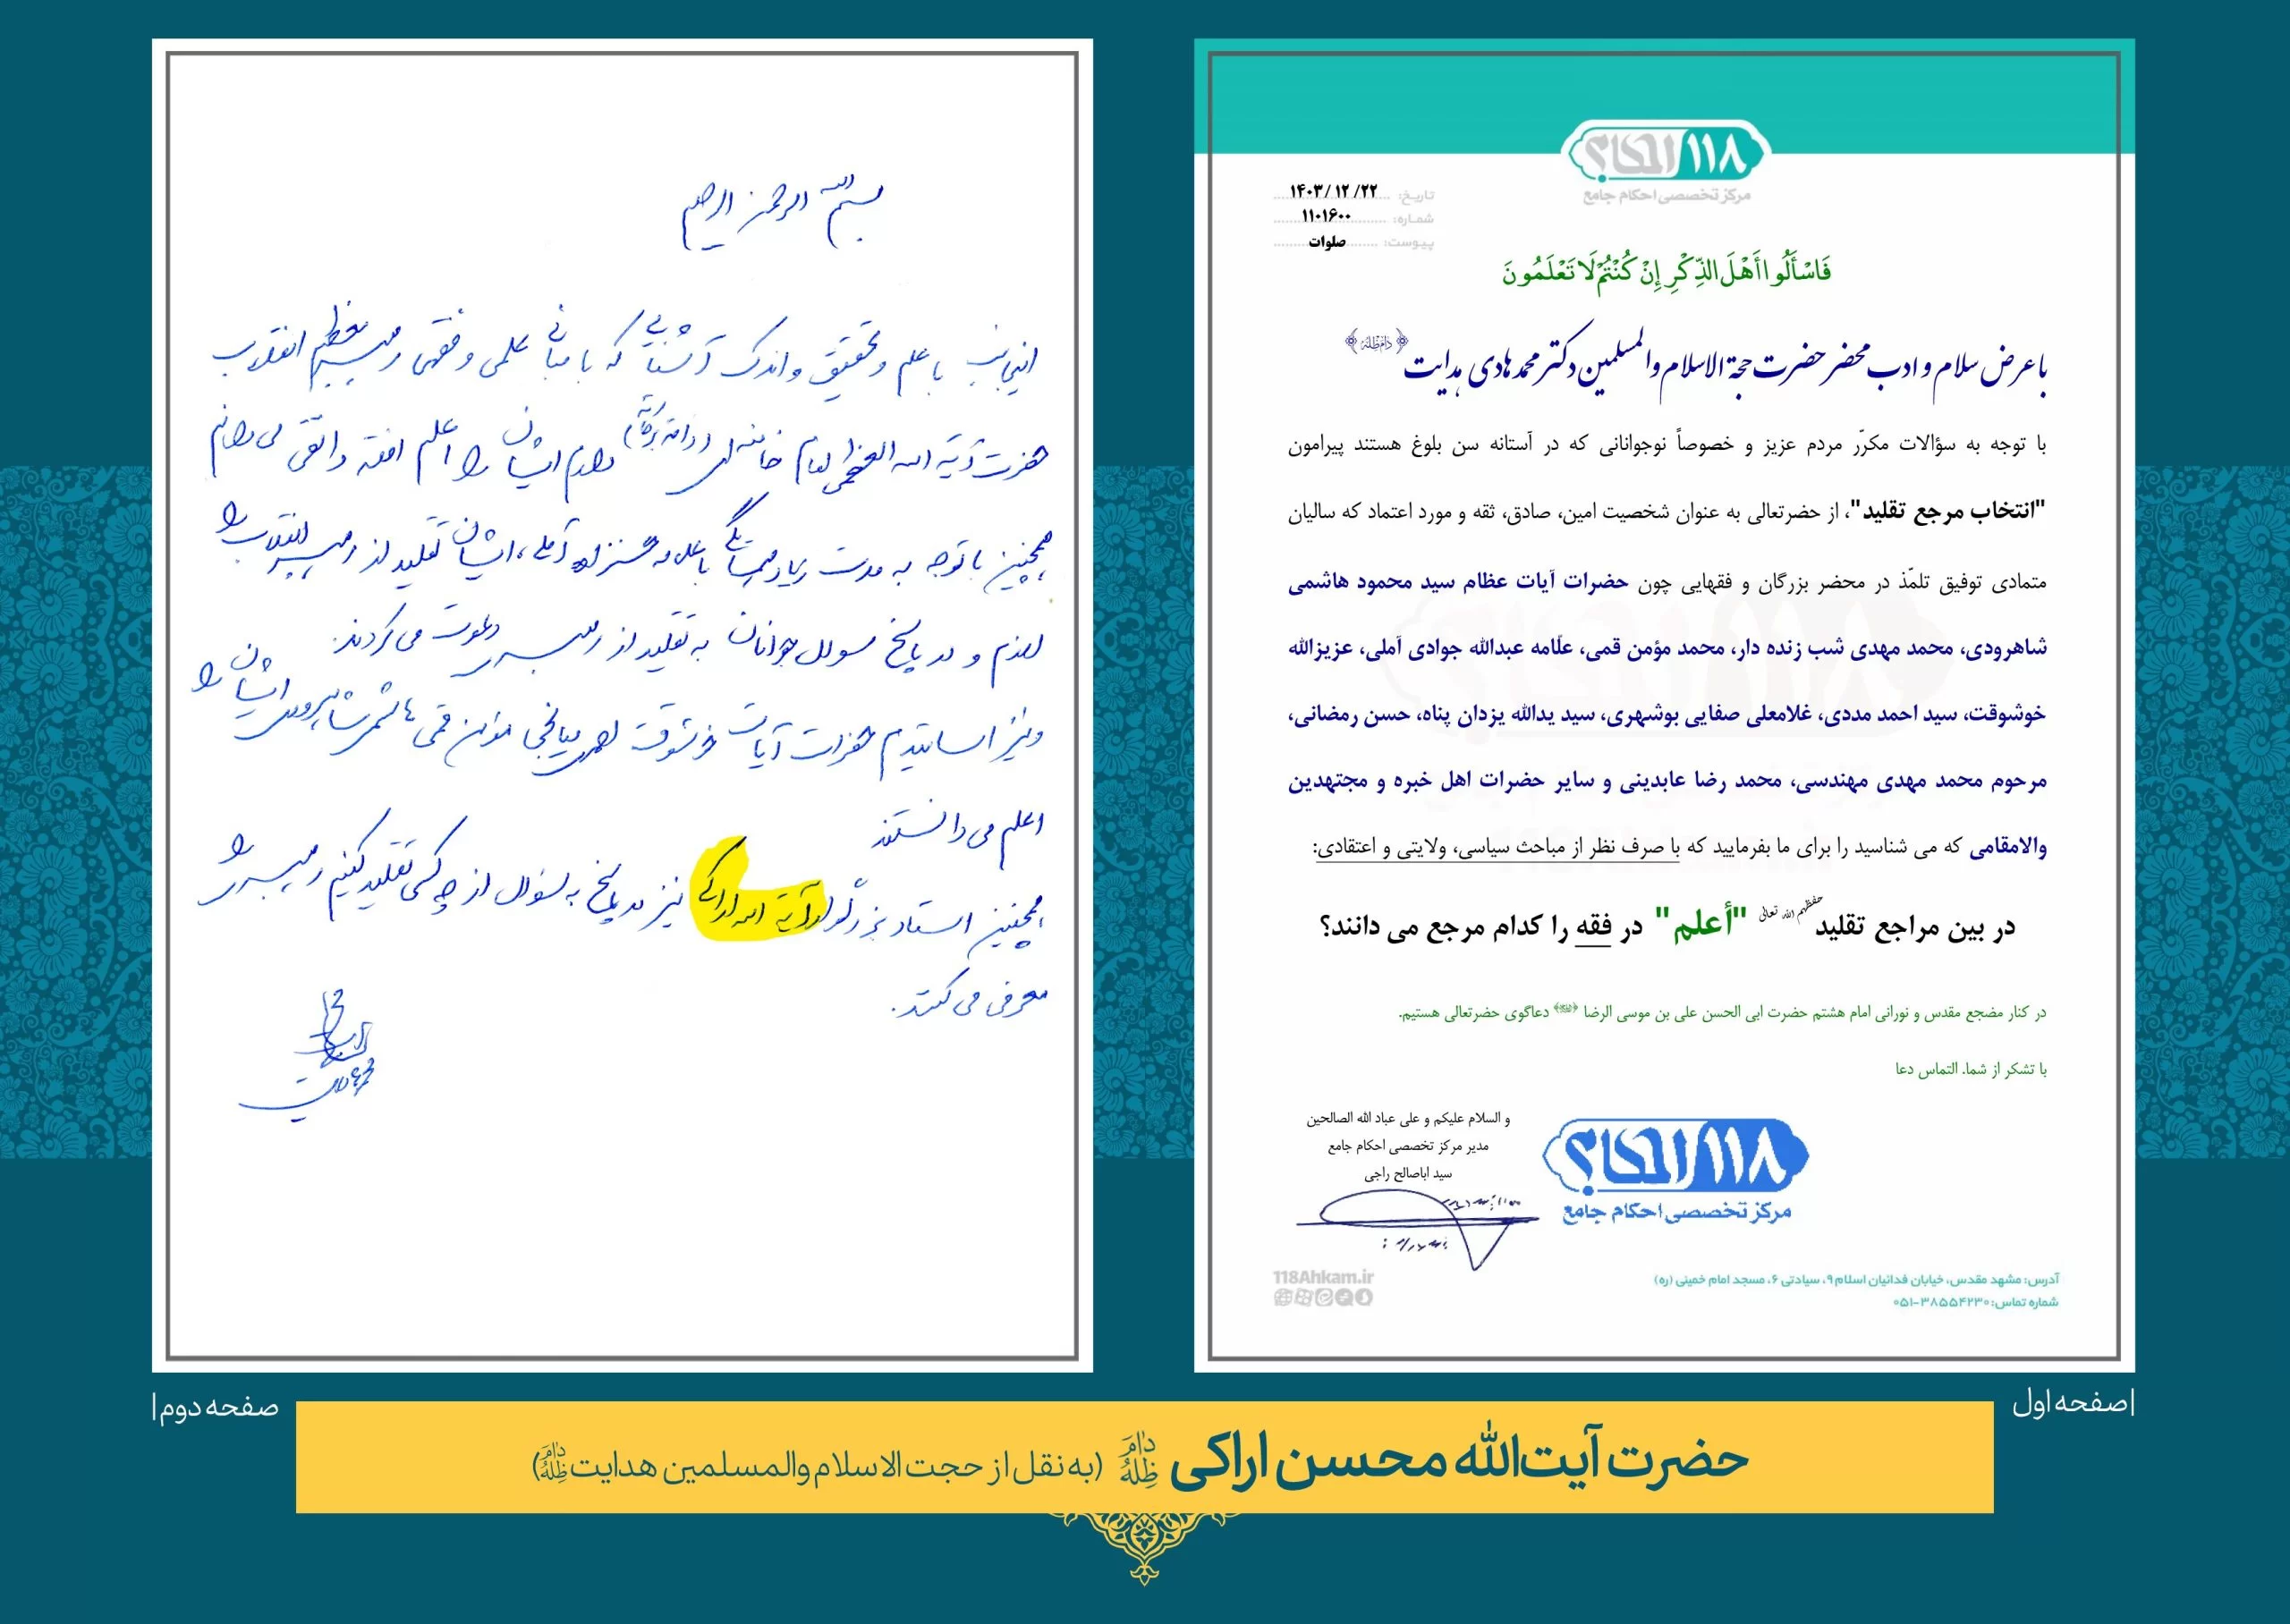 ۱۱۸ احکام
مرکز تخصصی احکام جامع
تاریخ: ۱۴۰۳/۱۲/۲۲
شماره: ۱۱۰۱۶۰۰
پیوست: صلوات
فَاسْأَلُوا أَهْلَ الذِّكْرِ إِنْ كُنْتُمْ لَا تَعْلَمُونَ
با عرض سلام و ادب محضر حضرت حجة الاسلام والمسلمین دکتر محمد هادی هدایت ﴿دام ظله﴾
با توجه به سؤالات مکرّر مردم عزیز و خصوصاً نوجوانانی که در آستانه سن بلوغ هستند پیرامون
"انتخاب مرجع تقلید"، از حضرتعالی به عنوان شخصیت امین، صادق، ثقه و مورد اعتماد که سالیان
متمادی توفیق تلمّذ در محضر بزرگان و فقهایی چون حضرات آیات عظام سید محمود هاشمی
شاهرودی، محمد مهدی شب زنده دار، محمد مؤمن قمی، علّامه عبدالله جوادی آملی، عزیزالله
خوشوقت، سید احمد مددی، غلامعلی صفایی بوشهری، سید یدالله یزدان پناه، حسن رمضانی،
مرحوم محمد مهدی مهندسی، محمد رضا عابدینی و سایر حضرات اهل خبره و مجتهدین
والامقامی که می شناسید را برای ما بفرمایید که با صرف نظر از مباحث سیاسی، ولایتی و اعتقادی:
در بین مراجع تقلید حفظهم الله تعالی "أعلم" در فقه را کدام مرجع می دانند؟
در کنار مضجع مقدس و نورانی امام هشتم حضرت ابی الحسن علی بن موسی الرضا دعاگوی حضرتعالی هستیم.
با تشکر از شما. التماس دعا
و السلام علیکم و علی عباد الله الصالحین
مدیر مرکز تخصصی احکام جامع
سید اباصالح راجی
۱۱۸ احکام
مرکز تخصصی احکام جامع
118Ahkam.ir
آدرس: مشهد مقدس، خیابان فدائیان اسلام ۹، سیادتی ۶، مسجد امام خمینی (ره)
شماره تماس: ۳۸۵۵۴۲۳۰-۰۵۱
|صفحه اول
بسم الله الرحمن الرحیم
اینجانب با علم و تحقیق و اندک آشنایی که با مبانی علمی و فقهی رهبر معظم انقلاب
حضرت آیة الله العظمی امام خامنه ای (دامت برکاته) دارم ایشان را اعلم افقه و اتقی می دانم
همچنین با توجه به مدت زیاد همسایگی با علامه حسن زاده آملی، ایشان تقلید از رهبر انقلاب را
لازم و در پاسخ سوال جوانان به تقلید از رهبری دعوت می کردند.
و نیز اساتیدم حضرات آیات خوشوقت احمدی میانجی مؤمن قمی هاشمی شاهرودی ایشان را
اعلم می دانستند
همچنین استاد بزرگوار آیة الله اراکی نیز در پاسخ به سؤال از چه کسی تقلید کنیم رهبری را
معرفی می کنند.
صفحه دوم|
حضرت آیت‌الله محسن اراکی دام ظله (به نقل از حجت الاسلام والمسلمین هدایت دام ظله)